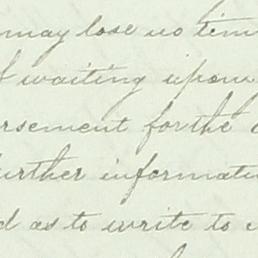 may lose no tim
f waiting upon
rsement for the
urther informati
d as to write to